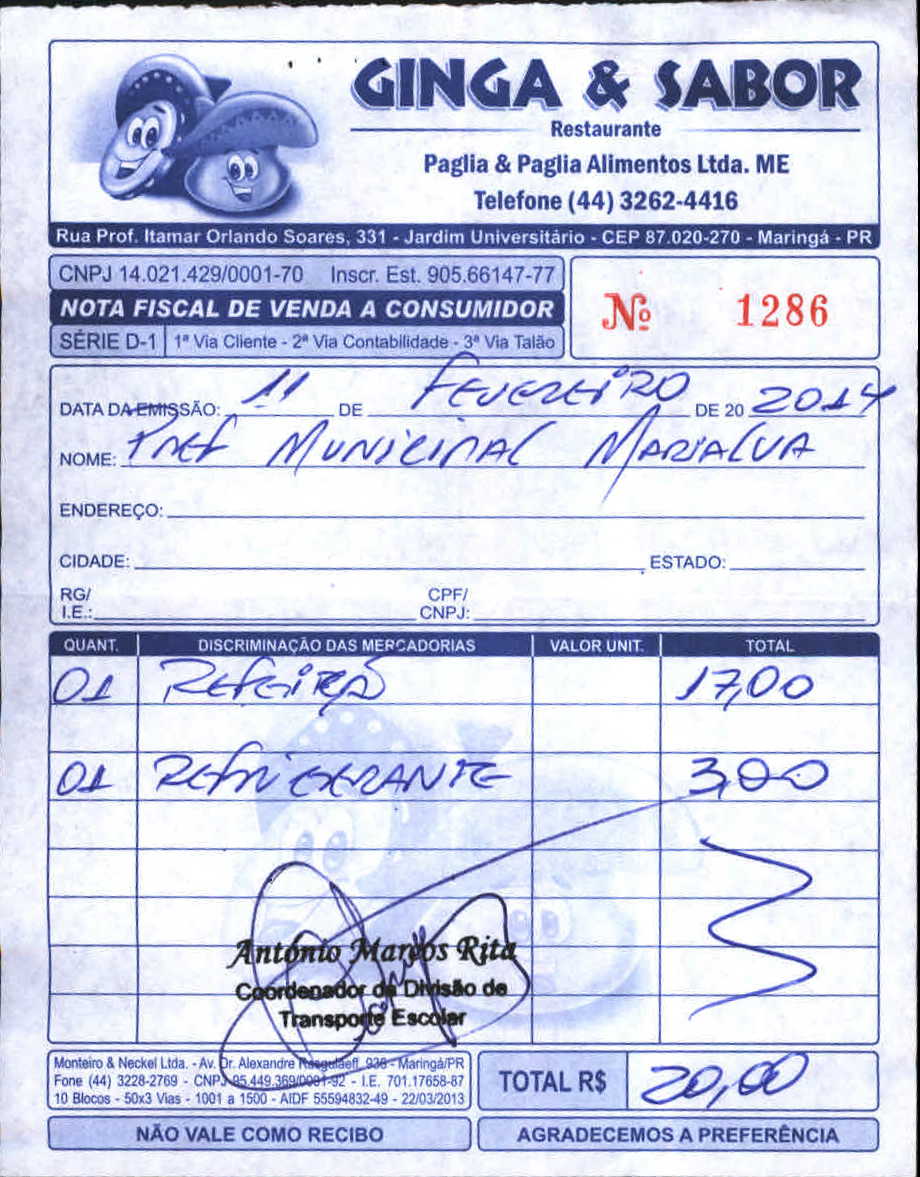 GINGA & SABOR
Restaurante
Paglia & Paglia Alimentos Ltda. ME
Telefone (44) 3262-4416
Rua Prof. Itamar Orlando Soares, 331 - Jardim Universitário - CEP 87.020-270 - Maringá - PR
CNPJ 14.021.429/0001-70 Inscr. Est. 905.66147-77
NOTA FISCAL DE VENDA A CONSUMIDOR
SÉRIE D-1 1ª Via Cliente - 2ª Via Contabilidade - 3ª Via Talão
Nº 1286
DATA DA EMISSÃO: 11 DE FEVEREIRO DE 20 2014
NOME: Pref Municipal Marialva
ENDEREÇO:
CIDADE: ESTADO:
RG/ I.E.: CPF/ CNPJ:
QUANT. DISCRIMINAÇÃO DAS MERCADORIAS VALOR UNIT. TOTAL
01 Refeição 17,00
01 REFRIGERANTE 3,00
Antônio Marcos Rita
Coordenador da Divisão de
Transporte Escolar
Monteiro & Neckel Ltda. - Av. Dr. Alexandre 936 - Maringá/PR
Fone (44) 3228-2769 - CNPJ 95.449.369/0001-92 - I.E. 701.17658-87
10 Blocos - 50x3 Vias - 1001 a 1500 - AIDF 55594832-49 - 22/03/2013
TOTAL R$ 20,00
NÃO VALE COMO RECIBO
AGRADECEMOS A PREFERÊNCIA